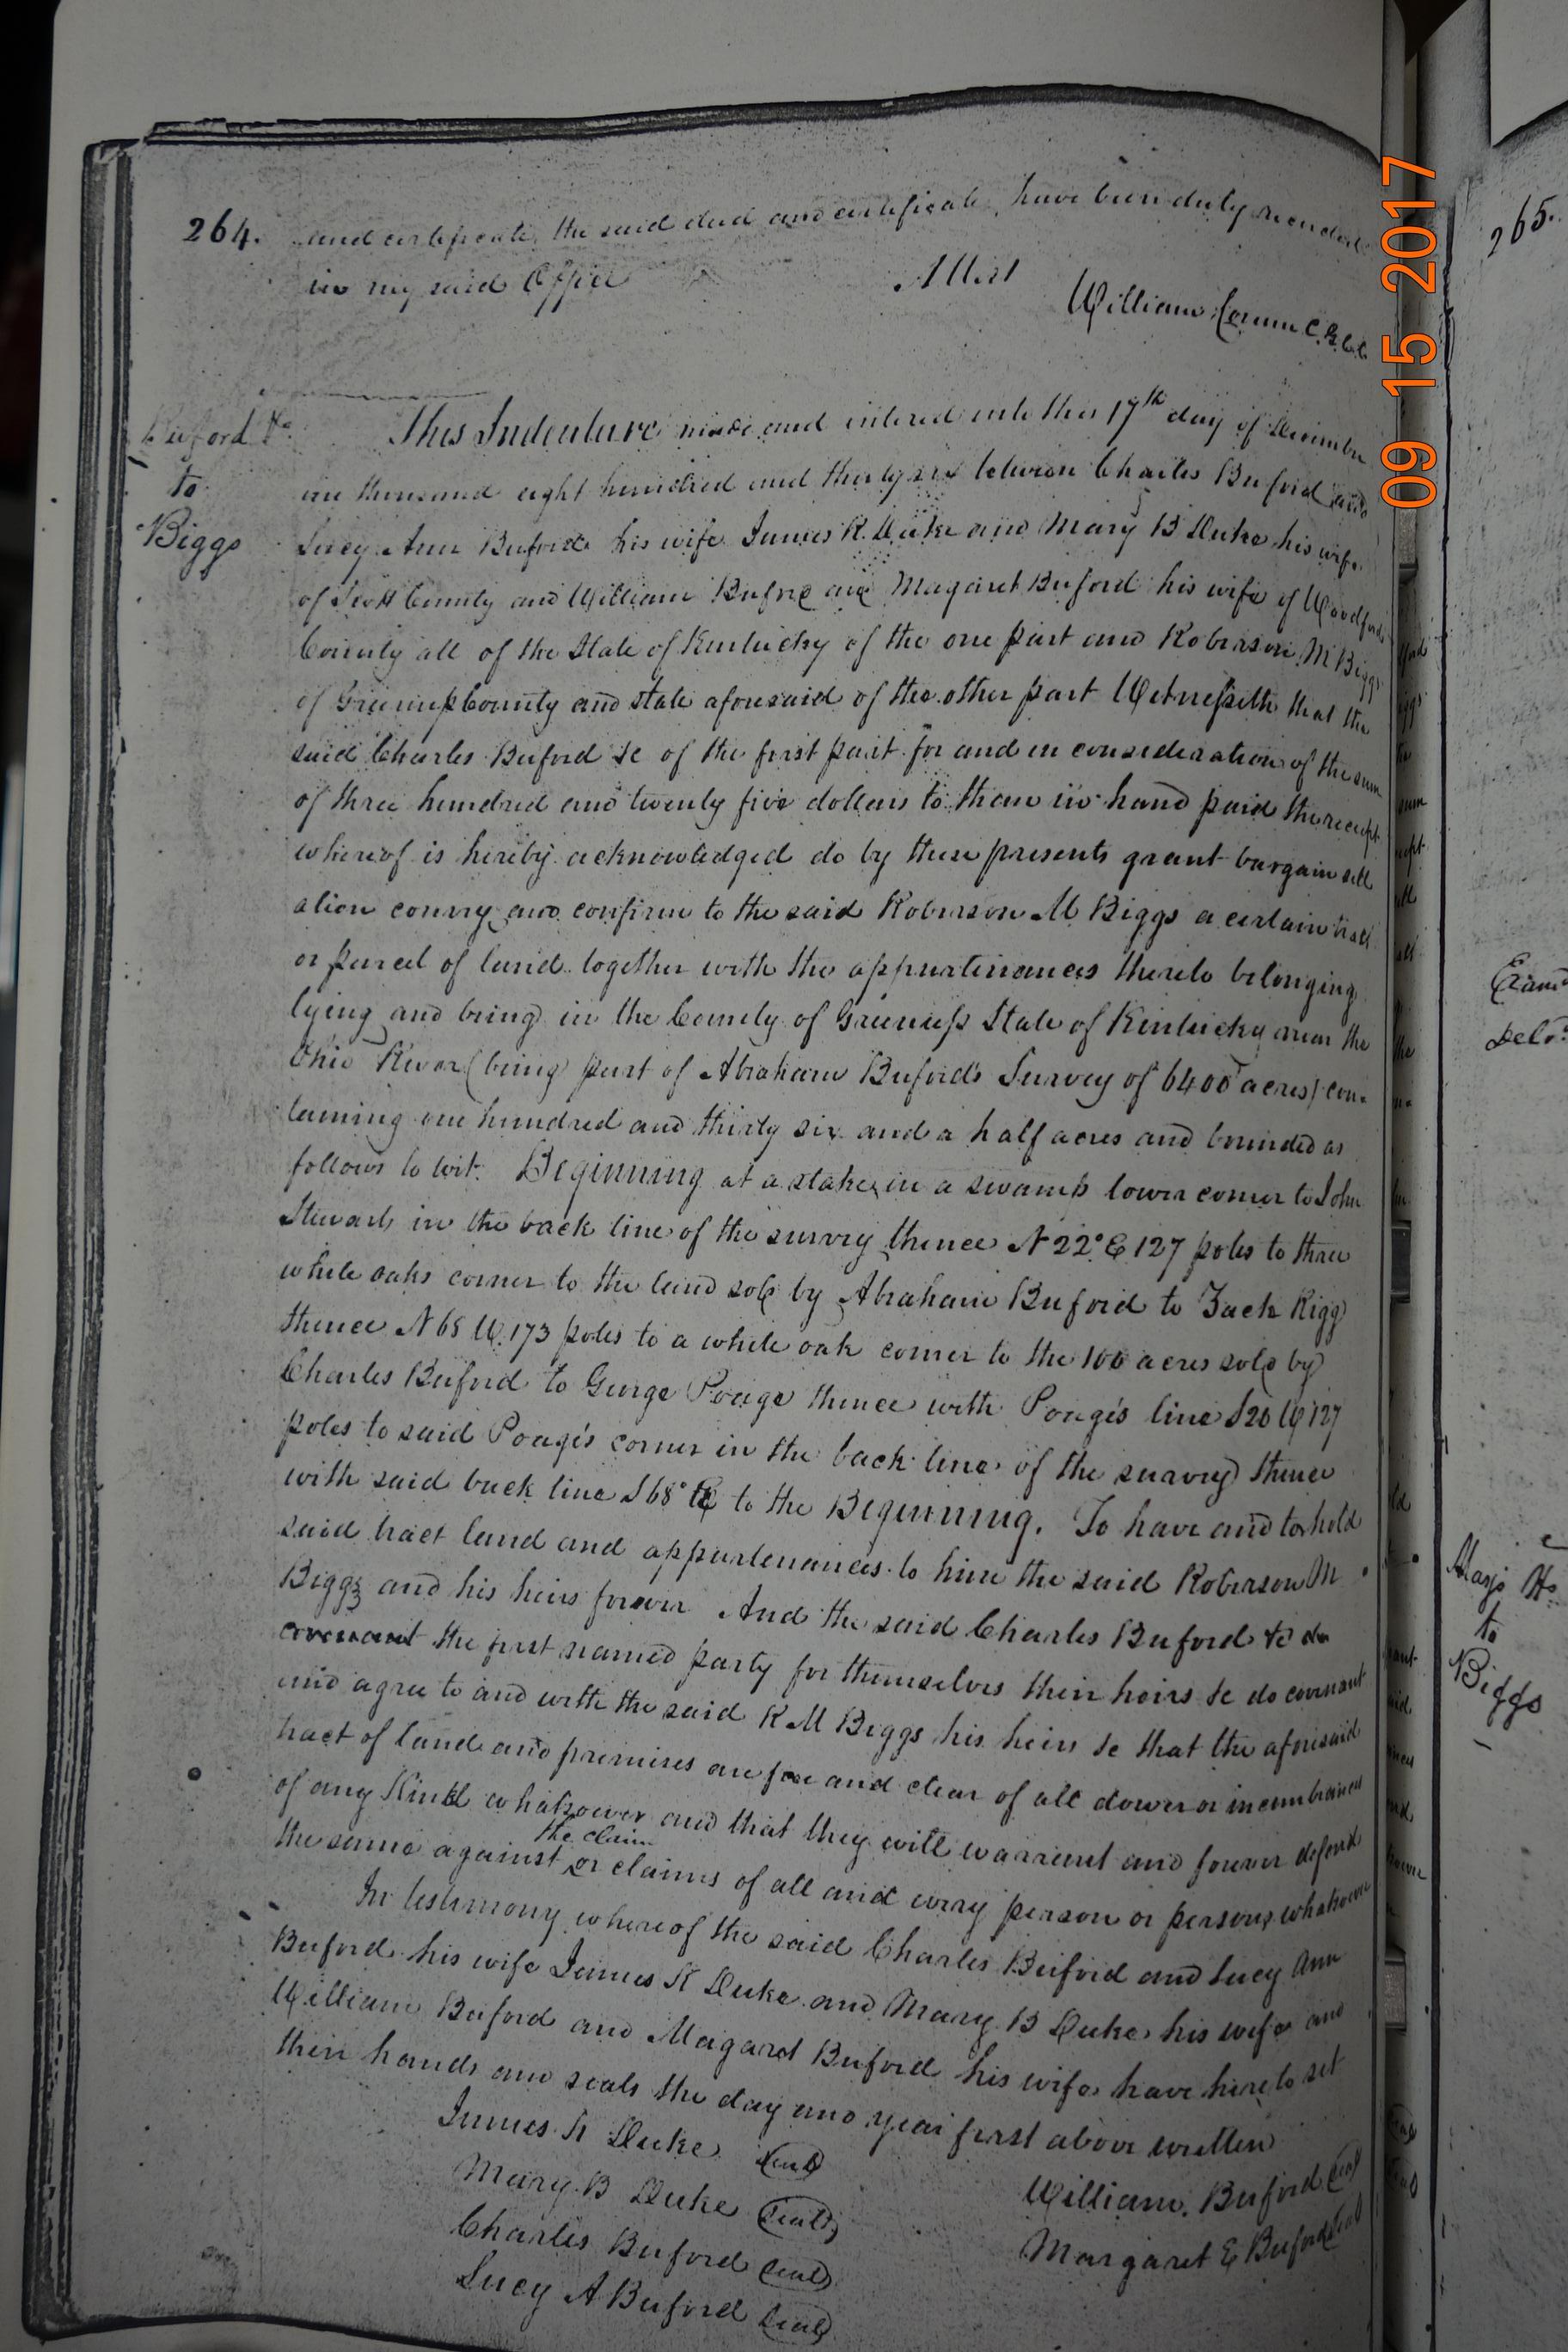 264.
and certificate, the said deed and certificate, have been duly recorded
in my said Office
Attest
William Corum C.G.C.C.
Buford &c
to
Biggs
This Indenture made and entered into this 17th day of December
one thousand eight hundred and thirty six between Charles Buford and
Lucy Ann Buford his wife James K. Duke and Mary B Duke his wife
of Scott County and William Buford and Magaret Buford his wife of Woodford
County all of the State of Kentucky of the one part and Roberson M Biggs
of Greenup County and state aforesaid of the other part Witnesseth that the
said Charles Buford &c of the first part for and in consideration of the sum
of three hundred and twenty five dollars to them in hand paid the receipt
whereof is hereby acknowledged do by these presents grant bargain sell
alien convey and confirm to the said Roberson M Biggs a certain tract
or parcel of land together with the appurtinances thereto belonging
lying and being in the County of Greenup State of Kentucky near the
Ohio River (being part of Abraham Buford's Survey of 6400 acres) con-
taining one hundred and thirty six and a half acres and bounded as
follows to wit. Beginning at a stake in a swamp lower corner to John
Stewarts in the back line of the survey thence N 22° E 127 poles to three
white oaks corner to the land sold by Abraham Buford to Zack Rigg
thence N 68 W. 173 poles to a white oak corner to the 100 acres sold by
Charles Buford to George Poage thence with Poage's line S 20 W 127
poles to said Poage's corner in the back line of the survey thence
with said back line S 68° E to the Beginning. To have and to hold
said tract land and appurtenances to him the said Roberson M
Biggs and his heirs forever And the said Charles Buford &c do
covenant the first named party for themselves their heirs &c do covenant
and agree to and with the said R M Biggs his heirs &c that the aforesaid
tract of land and premises are free and clear of all dower or incumbrances
of any kind whatsoever and that they will warrant and forever defend
the claim
the same against or claims of all and every person or persons whatsoever
In testimony whereof the said Charles Buford and Lucy Ann
Buford his wife James K Duke and Mary B Duke his wife and
William Buford and Magaret Buford his wife have hereto set
their hands and seals the day and year first above written
James K Duke Seal
Mary B Duke Seal
Charles Buford Seal
Lucy A Buford Seal
William Buford Seal
Margaret E Buford Seal
09 15 2017
265.
to
Biggs